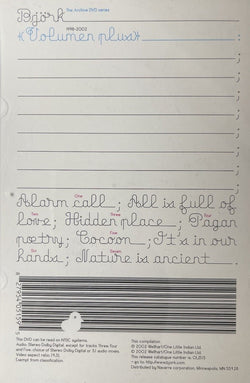 Björk The Archive DVD series
«Volumen plus» 1998-2002
One
Alarm call ; All is full of
Two Three Four
love ; Hidden place ; Pagan
Five Six
poetry ; Cocoon ; It's in our
Seven
hands ; Nature is ancient .
This DVD can be read on NTSC systems.
Audio: Stereo Dolby Digital, except for tracks Three, Four
and Five, choice of Stereo Dolby Digital or 5.1 audio mixes.
Exempt from classification.
This compilation:
© 2002 Wellhart/One Little Indian Ltd.
℗ 2002 Wellhart/One Little Indian Ltd.
go to: http://www.bjork.com
Distributed by Navarre corporation, Minneapolis, MN